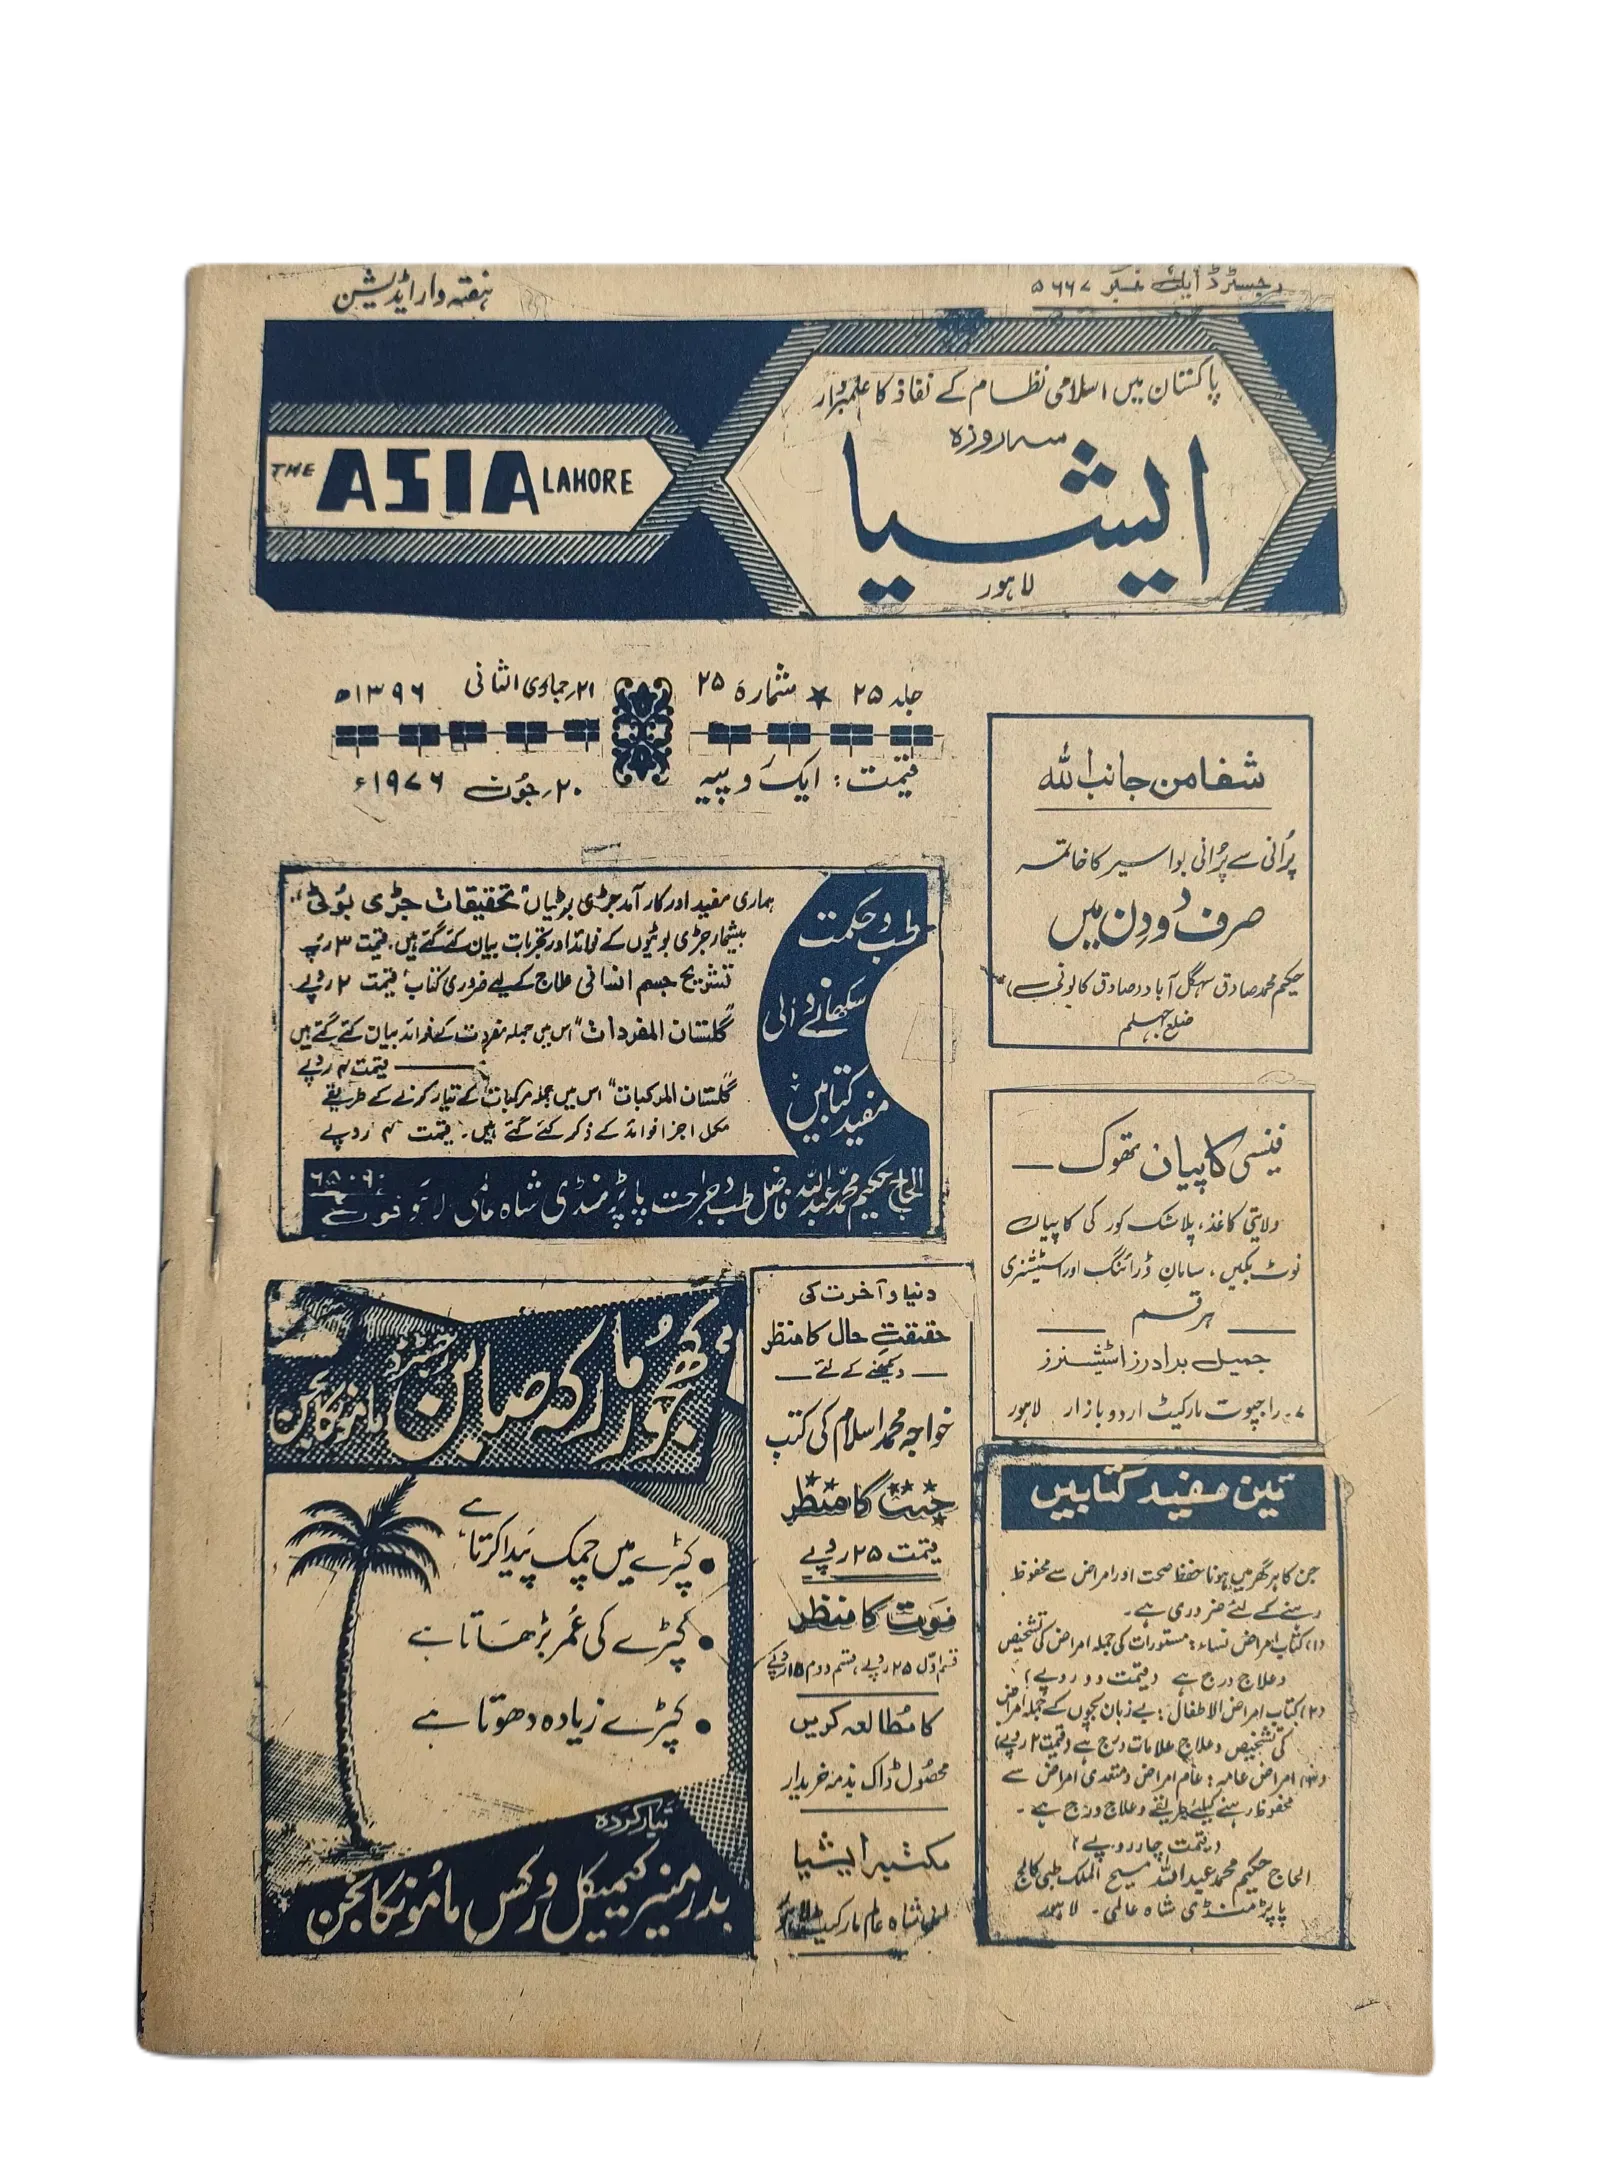 رجسٹرڈ ایل نمبر ۵۶۶۷
ہفتہ وار ایڈیشن
پاکستان میں اسلامی نظام کے نفاذ کا علمبردار
سہ روزہ
ایشیا
لاہور
THE ASIA LAHORE
جلد ۲۵ ★ شمارہ ۲۵
۲۱ جمادی الثانی ۱۳۹۶ھ
قیمت : ایک روپیہ
۲۰ جون ۱۹۷۶ء
شفا من جانب اللہ
پُرانی سے پُرانی بواسیر کا خاتمہ
صرف دو دِن میں
حکیم محمد صادق سہگل آباد (صادق کالونی)
ضلع جہلم
طب و حکمت
سکھانے والی
مفید کتابیں
ہماری مفید اور کارآمد جڑی بوٹیاں "تحقیقات جڑی بُوٹی"
بیشمار جڑی بوٹیوں کے فوائد اور تجربات بیان کئے گئے ہیں۔ قیمت ۳ روپے
تشریح جسم انسانی علاج کے لیے ضروری کتاب قیمت ۲ روپے
"گلستان المفردات" اس میں جملہ مفردات کے فوائد بیان کئے گئے ہیں
قیمت ۴ روپے
"گلستان المرکبات" اس میں جملہ مرکبات کے تیار کرنے کے طریقے
مکمل اجزا فوائد کے ذکر کئے گئے ہیں۔ قیمت ۴ روپے
الحاج حکیم محمد عبداللہ فاضل طب و جراحت پاپڑ منڈی شاہ عالمی لاہور فون
فینسی کاپیاں تھوک
ولایتی کاغذ، پلاسٹک کور کی کاپیاں
نوٹ بکیں، سامانِ ڈرائنگ اور اسٹیشنری
ہر قسم
جمیل برادرز اسٹیشنرز
۷۔ راجپوت مارکیٹ اردو بازار لاہور
کھجُور مارکہ صابن
رجسٹرڈ
ماموں کانجن
• کپڑے میں چمک پَیدا کرتا ہے
• کپڑے کی عُمر بڑھاتا ہے
• کپڑے زیادہ دھوتا ہے
تیار کردہ
بدر منیر کیمیکل ورکس ماموں کانجن
دنیا و آخرت کی
حقیقتِ حال کا منظر
دیکھنے کے لئے
خواجہ محمد اسلام کی کتب
جنت کا منظر
قیمت ۲۵ روپے
موَت کا منظر
قسم اوّل ۲۵ روپے، قسم دوم ۱۵ روپے
کا مُطالعہ کریں
محصُول ڈاک بذمہ خریدار
مکتبہ ایشیا
شاہ عالم مارکیٹ لاہور
تین مفید کتابیں
جن کا ہر گھر میں ہونا حفظِ صحت اور امراض سے محفوظ
رہنے کے لئے ضروری ہے۔
(۱) کتاب امراض نساء : مستورات کی جملہ امراض کی تشخیص
و علاج درج ہے (قیمت دو روپے)
(۲) کتاب امراض الاطفال : بے زبان بچوں کے جملہ امراض
کی تشخیص و علاج علامات درج ہے (قیمت ۲ روپے)
(۳) امراض عامہ : عام امراض و متعدی امراض سے
محفوظ رہنے کیلئے طریقے و علاج درج ہے۔
(قیمت چار روپے)
الحاج حکیم محمد عبداللہ مسیح الملک طبی کالج
پاپڑ منڈی شاہ عالمی۔ لاہور